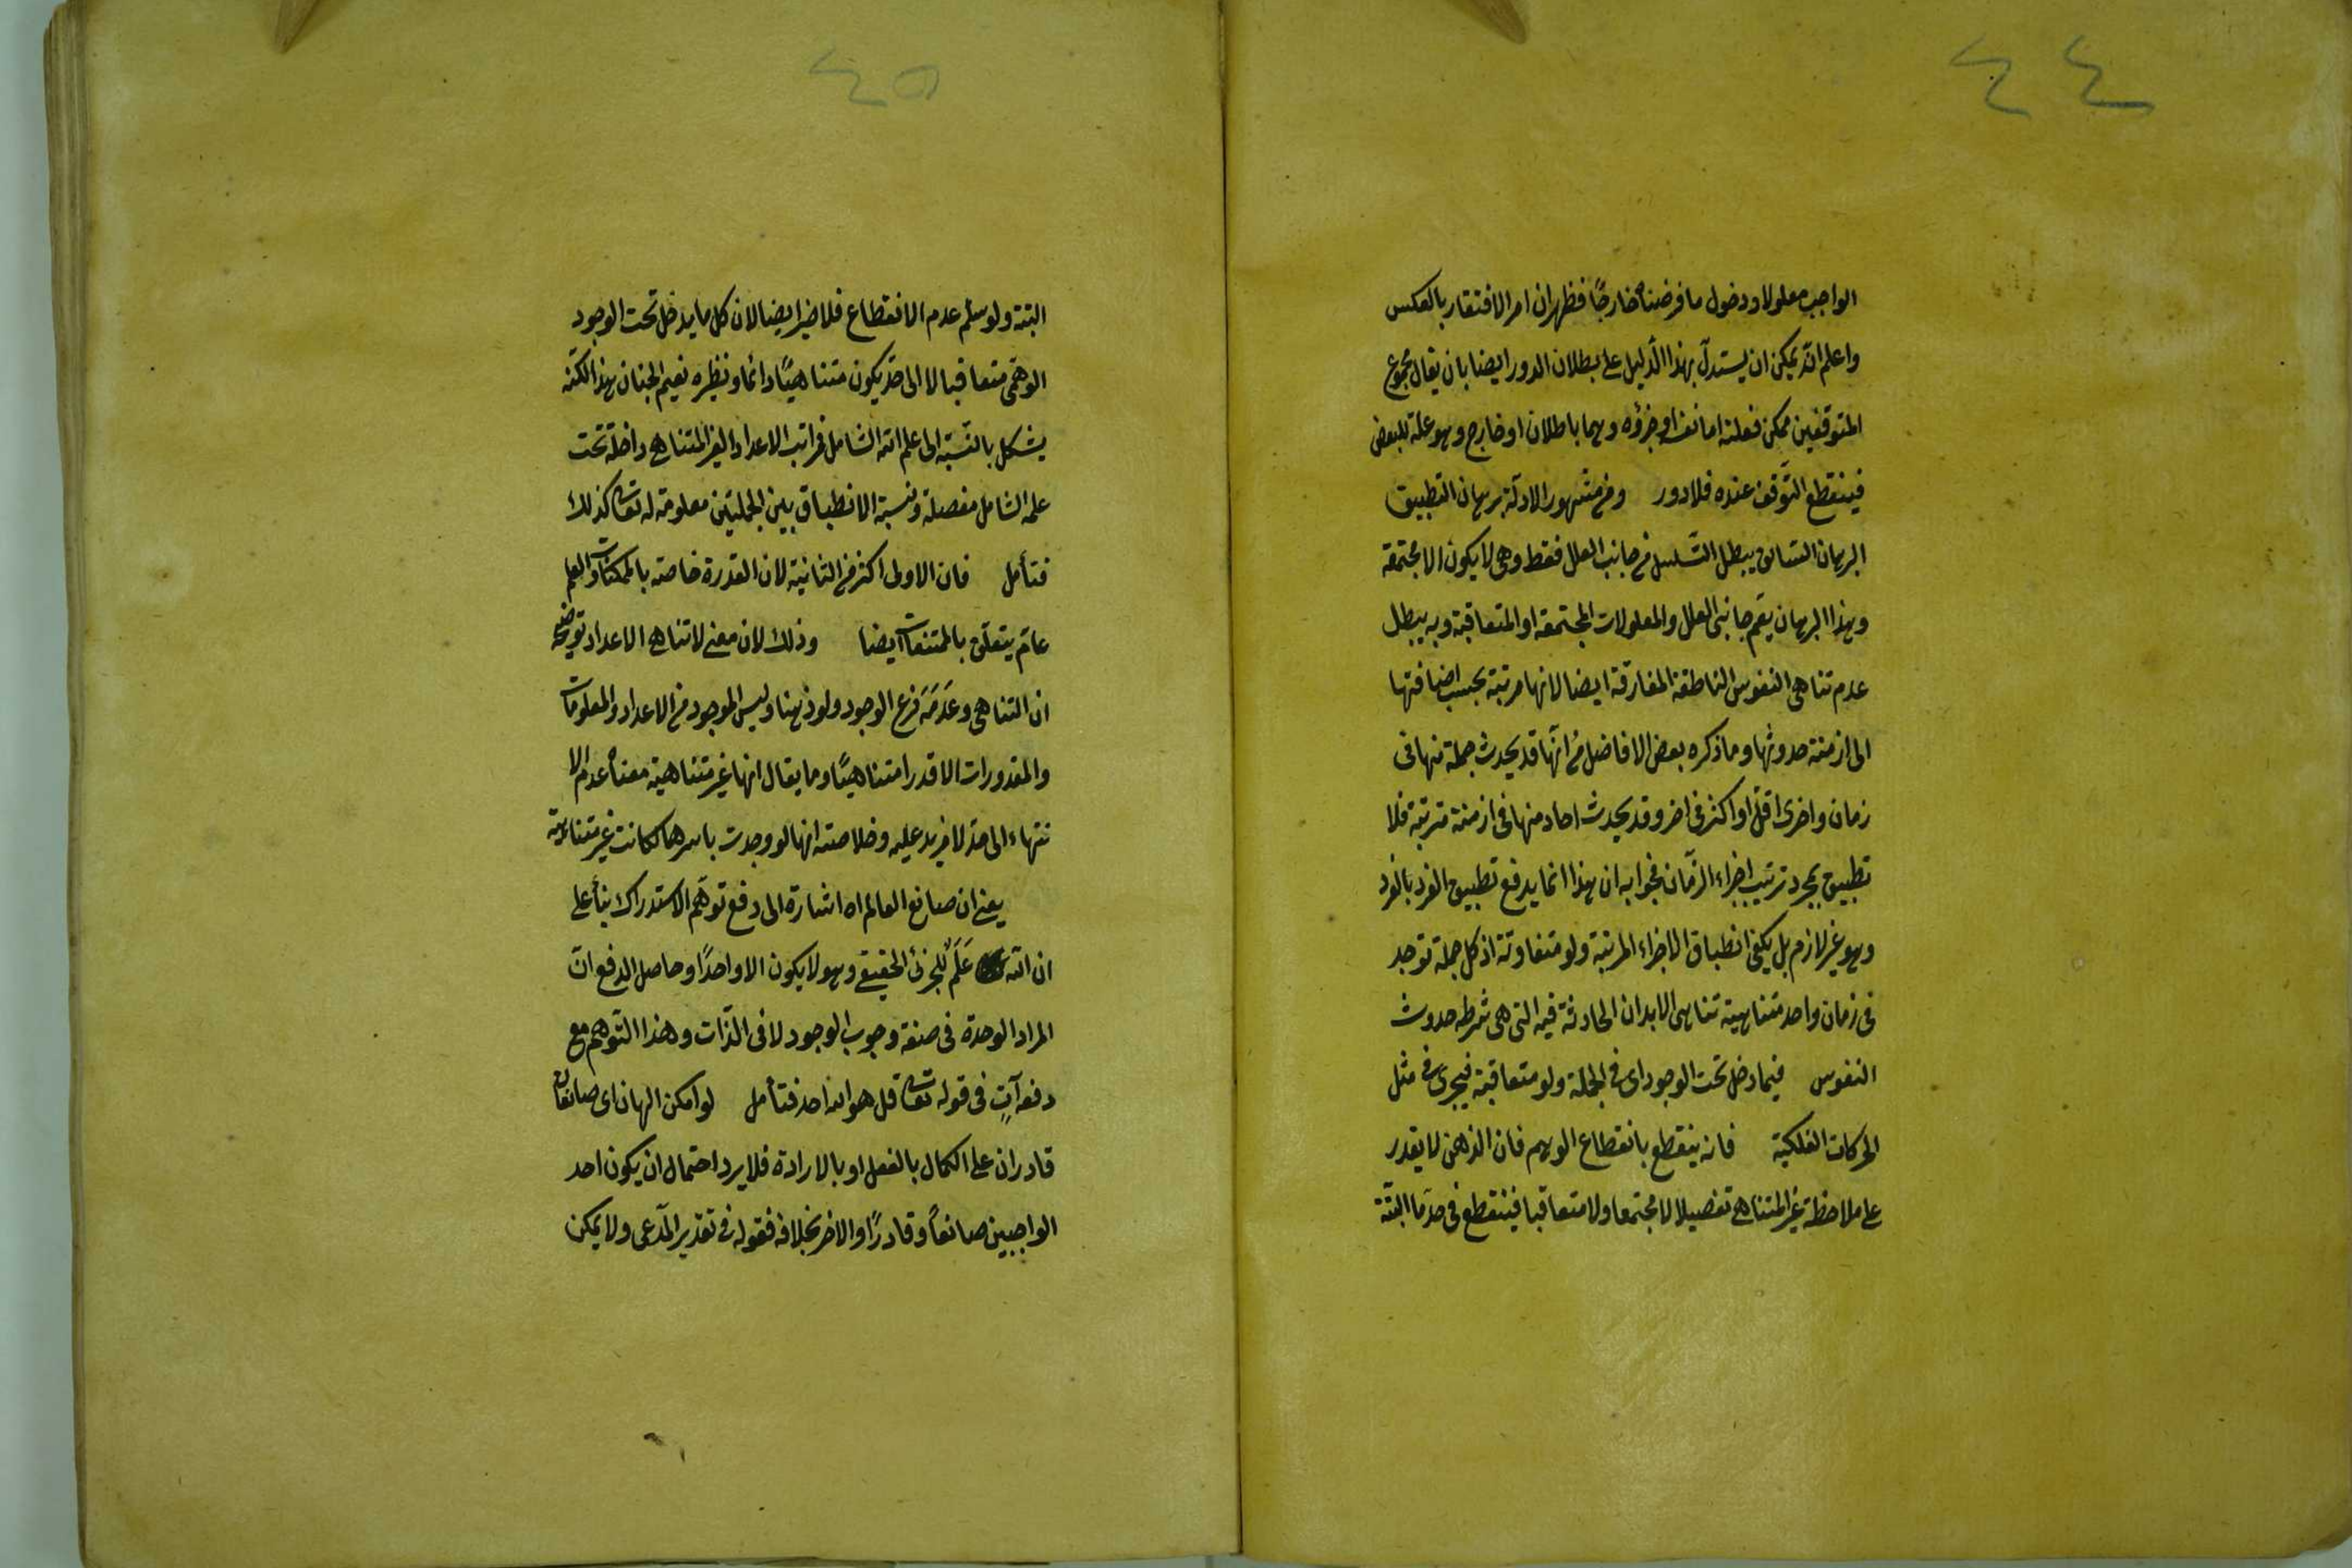 ٤٤
الواجب معلولا ودخول ما فرضناه خارجًا فظهر ان امر الافتقار بالعكس
واعلم انّه يمكن ان يستدلّ بهذا الدّليل على بطلان الدور ايضا بان يقال مجموع
المتوقفين ممكن فعلته اما نفسه او جزؤه وهما باطلان او خارج وهو علة للبعض
فينقطع التّوقف عنده فلا دور ومن مشهور الادلّة برهان التطبيق
البرهان السّابق يبطل التّسلسل من جانب العلل فقط وهى لا يكون الا مجتمعة
وبهذا البرهان يعمّ جانبى العلل والمعلولات المجتمعة او المتعاقبة وبه يبطل
عدم تناهى النفوس الناطقة المفارقة ايضا لانها مرتبة بحسب اضافتها
الى ازمنة حدوثها وما ذكره بعض الافاضل من انّها قد يحدث جملة منها فى
زمان واخرى اقلّ او اكثر فى اخر وقد يحدث احاد منها فى ازمنة مترتبة فلا
تطبيق بمجرد ترتيب اجزاء الزّمان فجوابه ان هذا انما يدفع تطبيق الفرد بالفرد
وهو غير لازم بل يكفى انطباق الاجزاء المرتبة ولو متفاوتة اذ كل جملة توجد
فى زمان واحد متناهية تناهى الابدان الحادثة فيه التى هى شرط حدوث
النفوس فيما دخل تحت الوجود اى فى الجملة ولو متعاقبة فيجرى فى مثل
الحركات الفلكية فانه ينقطع بانقطاع الوهم فان الذهن لا يقدر
على ملاحظة غير المتناهى تفصيلا لا مجتمعا ولا متعاقبا فينقطع فى حدّ ما البتّة
٤٥
البتّة ولو سلّم عدم الانقطاع فلا ضير ايضا لان كل ما يدخل تحت الوجود
الوهمّى متعاقبا لا الى حدّ يكون متناهيًا دائما ونظيره نعيم الجنان هذا لكنّه
يشكل بالنّسبة الى علم اللّه الشامل فمراتب الاعداد الغير المتناهى داخلة تحت
علمه الشامل مفصلة ونسبة الانطباق بين الجملتين معلومة له تعالى كذلك
فتأمل فان الاولى اكثر من الثانية لان القدرة خاصة بالممكنات والعلم
عامّ يتعلّق بالممتنعات ايضا وذلك لان معنى لا تناهى الاعداد توضيحه
ان التناهى وعَدَمَه فَرع الوجود ولو ذهنا وليس الموجود من الاعداد والمعلومات
والمقدورات الا قدرا متناهيًا وما يقال انها غير متناهية معناه عدم الا
نتهاء الى حدّ لا مزيد عليه وخلاصته انها لو وجدت باسرها لكانت غير متناهية
يعنى ان صانع العالم اه اشارة الى دفع توهّم الاستدراك بناءً على
ان اللّه عَلَمٌ للجزئى الحقيقى وهو لا يكون الا واحدًا وحاصل الدفع انّ
المراد الوحدة فى صفة وجوب الوجود لا فى الذّات وهذا التّوهم مع
دفعه آتٍ فى قوله تعالى قل هو الله احد فتأمل لو امكن الهان اى صانعان
قادران على الكمال بالفعل او بالارادة فلا يرد احتمال ان يكون احد
الواجبين صانعاً وقادرًا والاخر بخلافه فقوله فى تقدير المدّعى ولا يمكن